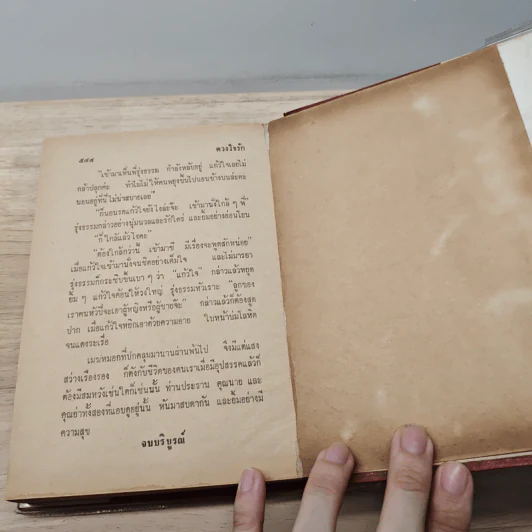 ๕๔๕ ดวงใจรัก
"เข้ามาเห็นพี่รุ่งธรรม กำลังหลับอยู่ แก้วใจเลยไม่
กล้าปลุกค่ะ ทำไมไม่ให้คนพยุงขึ้นไปนอนข้างบนล่ะคะ
นอนอยู่ที่นี่ไม่น่าสบายเลย"
รุ่งธรรมกล่าวอย่างนุ่มนวลและรักใคร่ และยิ้มอย่างอ่อนโยน
"ก็ใกล้แล้วไงคะ"
"ต้องใกล้กว่านี้ เข้ามาซี มีเรื่องจะพูดสักหน่อย"
เมื่อแก้วใจเข้ามานั่งจนชิดอย่างเต็มใจ และไม่มารยา
รุ่งธรรมก็กระซิบขึ้นเบา ๆ ว่า "แก้วใจ" กล่าวแล้วหยุด
ยิ้ม ๆ แก้วใจค้อนให้วงใหญ่ รุ่งธรรมหัวเราะ "ลูกของ
เราคนหัวปีจะเอาผู้หญิงหรือผู้ชายจ๊ะ" กล่าวแล้วก็ต้องสูด
ปาก เมื่อแก้วใจหยิกเอาด้วยความอาย ใบหน้าบ่มโลหิต
จนแดงระเรื่อ
เมฆหมอกที่ปกคลุมมานานผ่านพ้นไป จึงมีแต่แสง
สว่างเรืองรอง ก็ดังกับชีวิตของคนเราเมื่อมีอุปสรรคแล้วก็
ต้องมีสมหวังเช่นใดก็เช่นนั้น ท่านประธาน คุณนาย และ
คุณย่าทั้งสองที่แอบดูอยู่นั้น หันมาสบตากัน และยิ้มอย่างมี
ความสุข
จบบริบูรณ์